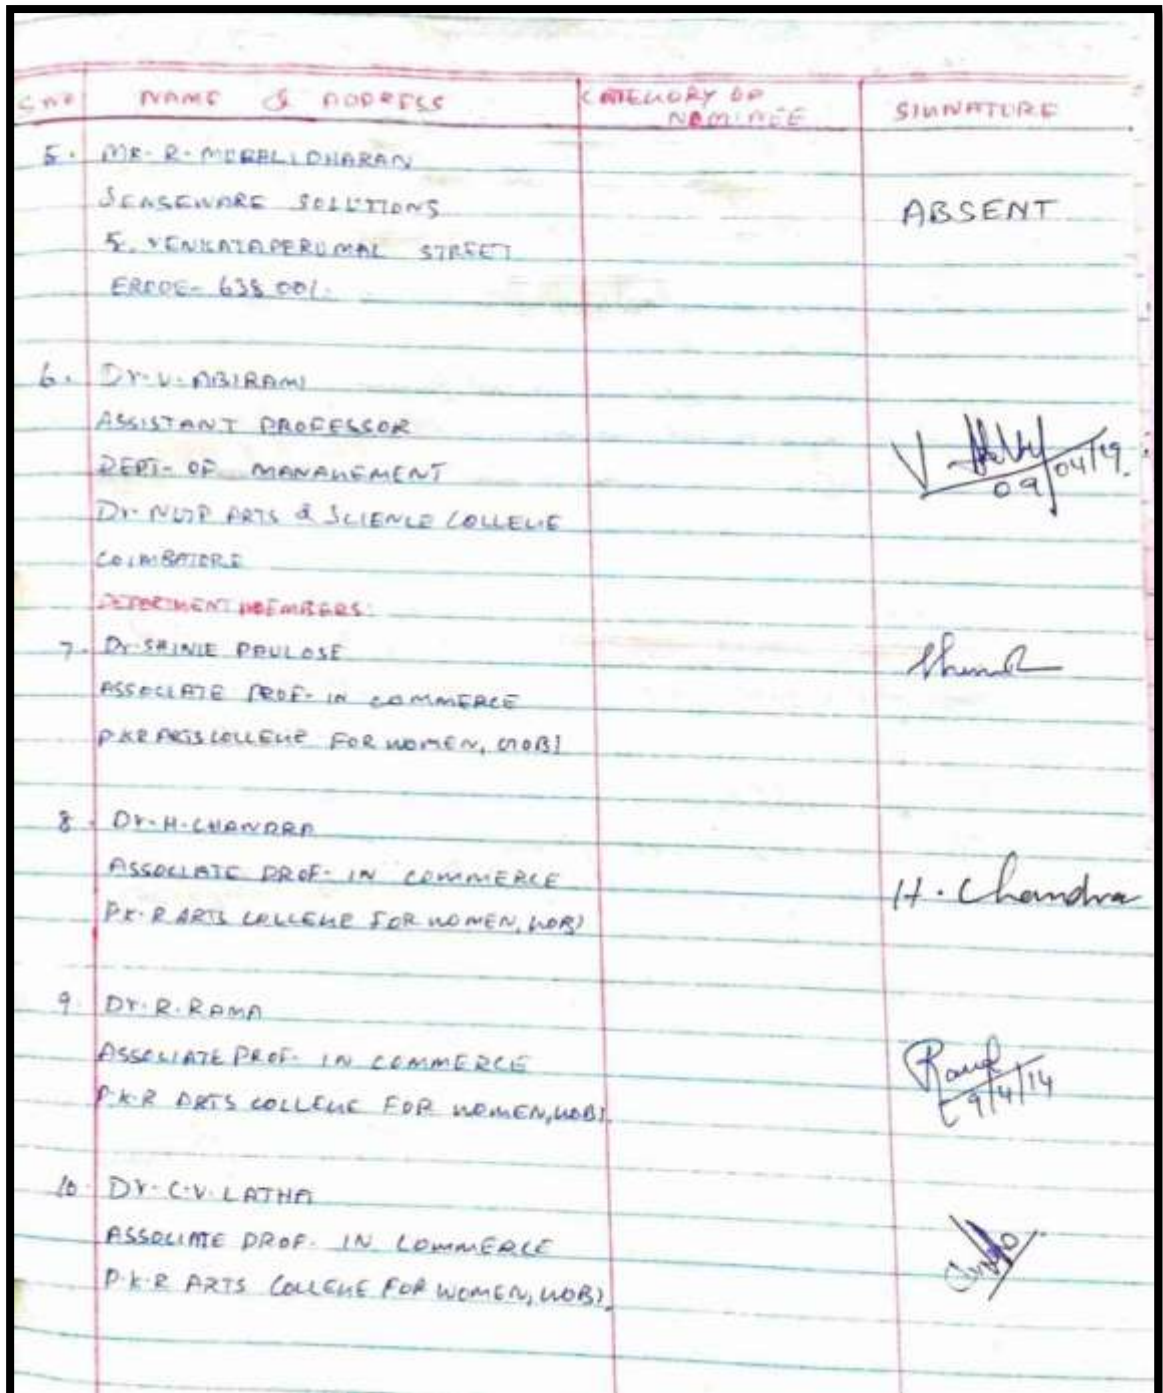 S.NO NAME & ADDRESS CATEGORY OF NOMINEE SIGNATURE
5. MR. R. MURALIDHARAN
SENSEWARE SOLUTIONS ABSENT
5, VENKATAPERUMAL STREET
ERODE- 638 001.
6. Dr. V. ABIRAMI
ASSISTANT PROFESSOR
DEPT. OF MANAGEMENT V. 09/04/19.
Dr. NGP ARTS & SCIENCE COLLEGE
COIMBATORE
DEPARTMENT MEMBERS:
7. Dr. SHINIE PAULOSE
ASSOCIATE PROF. IN COMMERCE
P.K.R ARTS COLLEGE FOR WOMEN, GOBI
8. Dr. H. CHANDRA
ASSOCIATE PROF. IN COMMERCE H. Chandra
P.K.R ARTS COLLEGE FOR WOMEN, GOBI
9. Dr. R. RAMA
ASSOCIATE PROF. IN COMMERCE
P.K.R ARTS COLLEGE FOR WOMEN, GOBI. 9/4/14
10. Dr. C.V. LATHA
ASSOCIATE PROF. IN COMMERCE
P.K.R ARTS COLLEGE FOR WOMEN, GOBI.